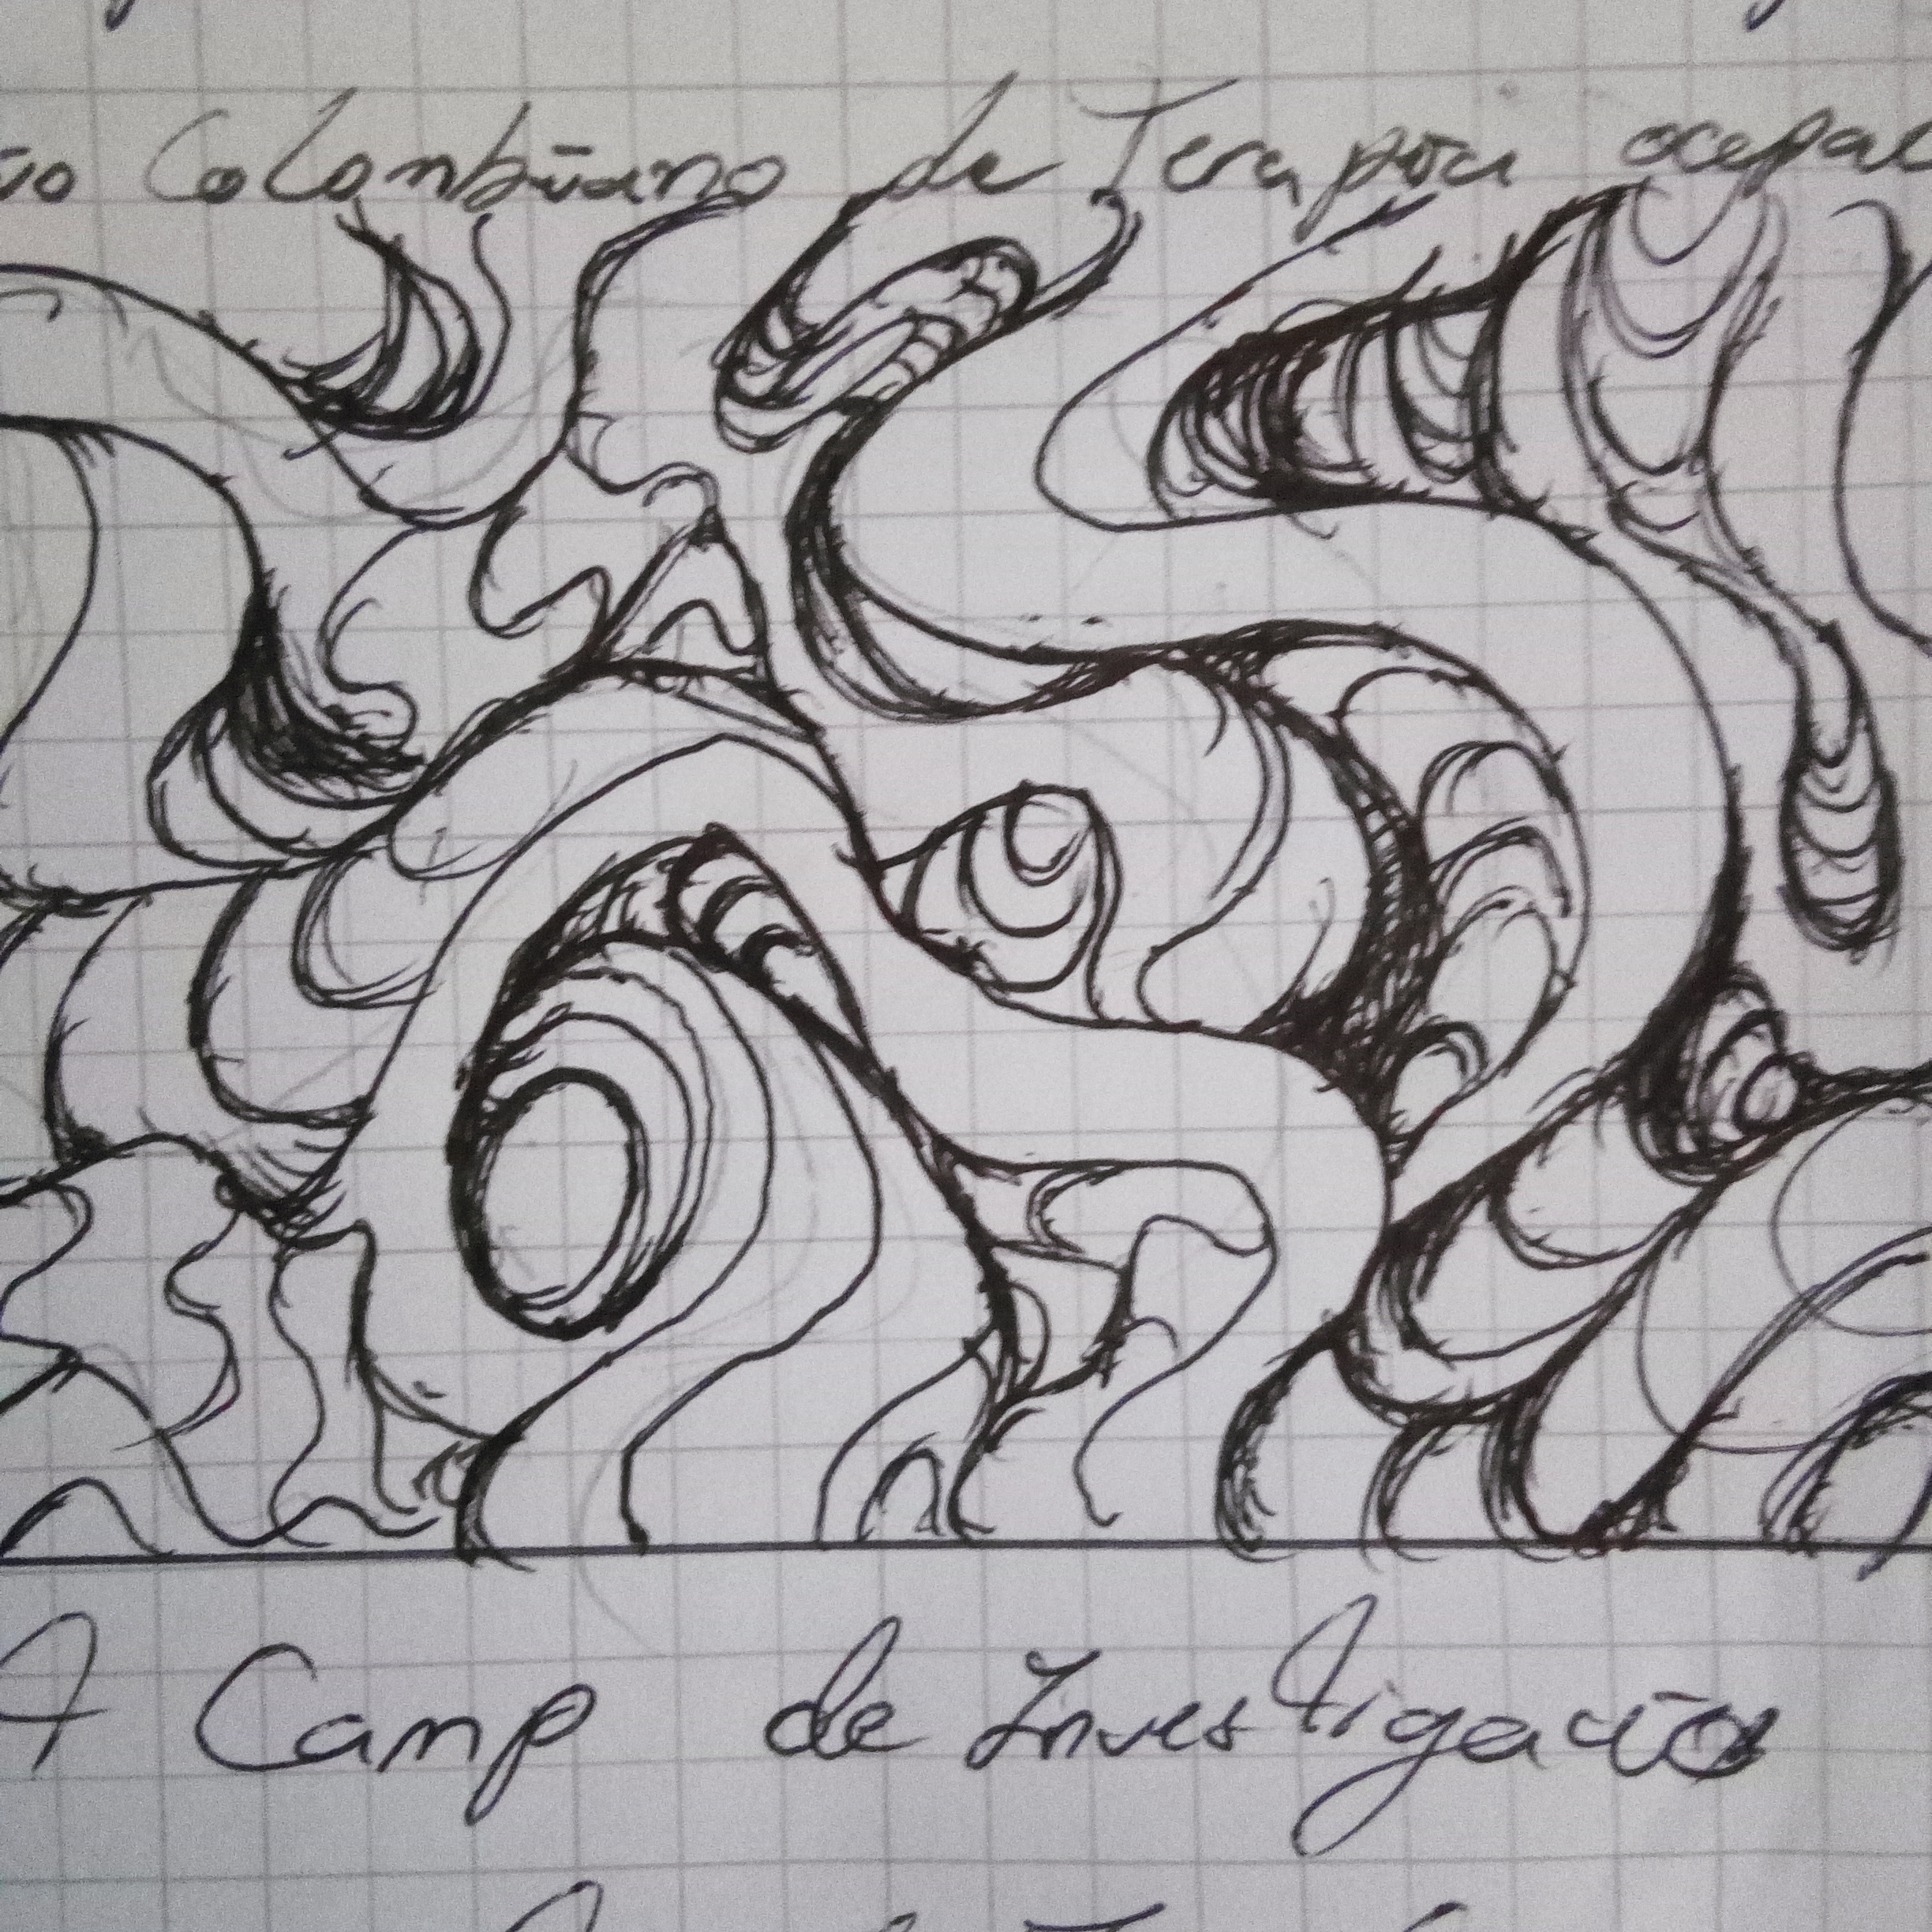 Colombiano de Terapia ocupac
Camp de Investigación